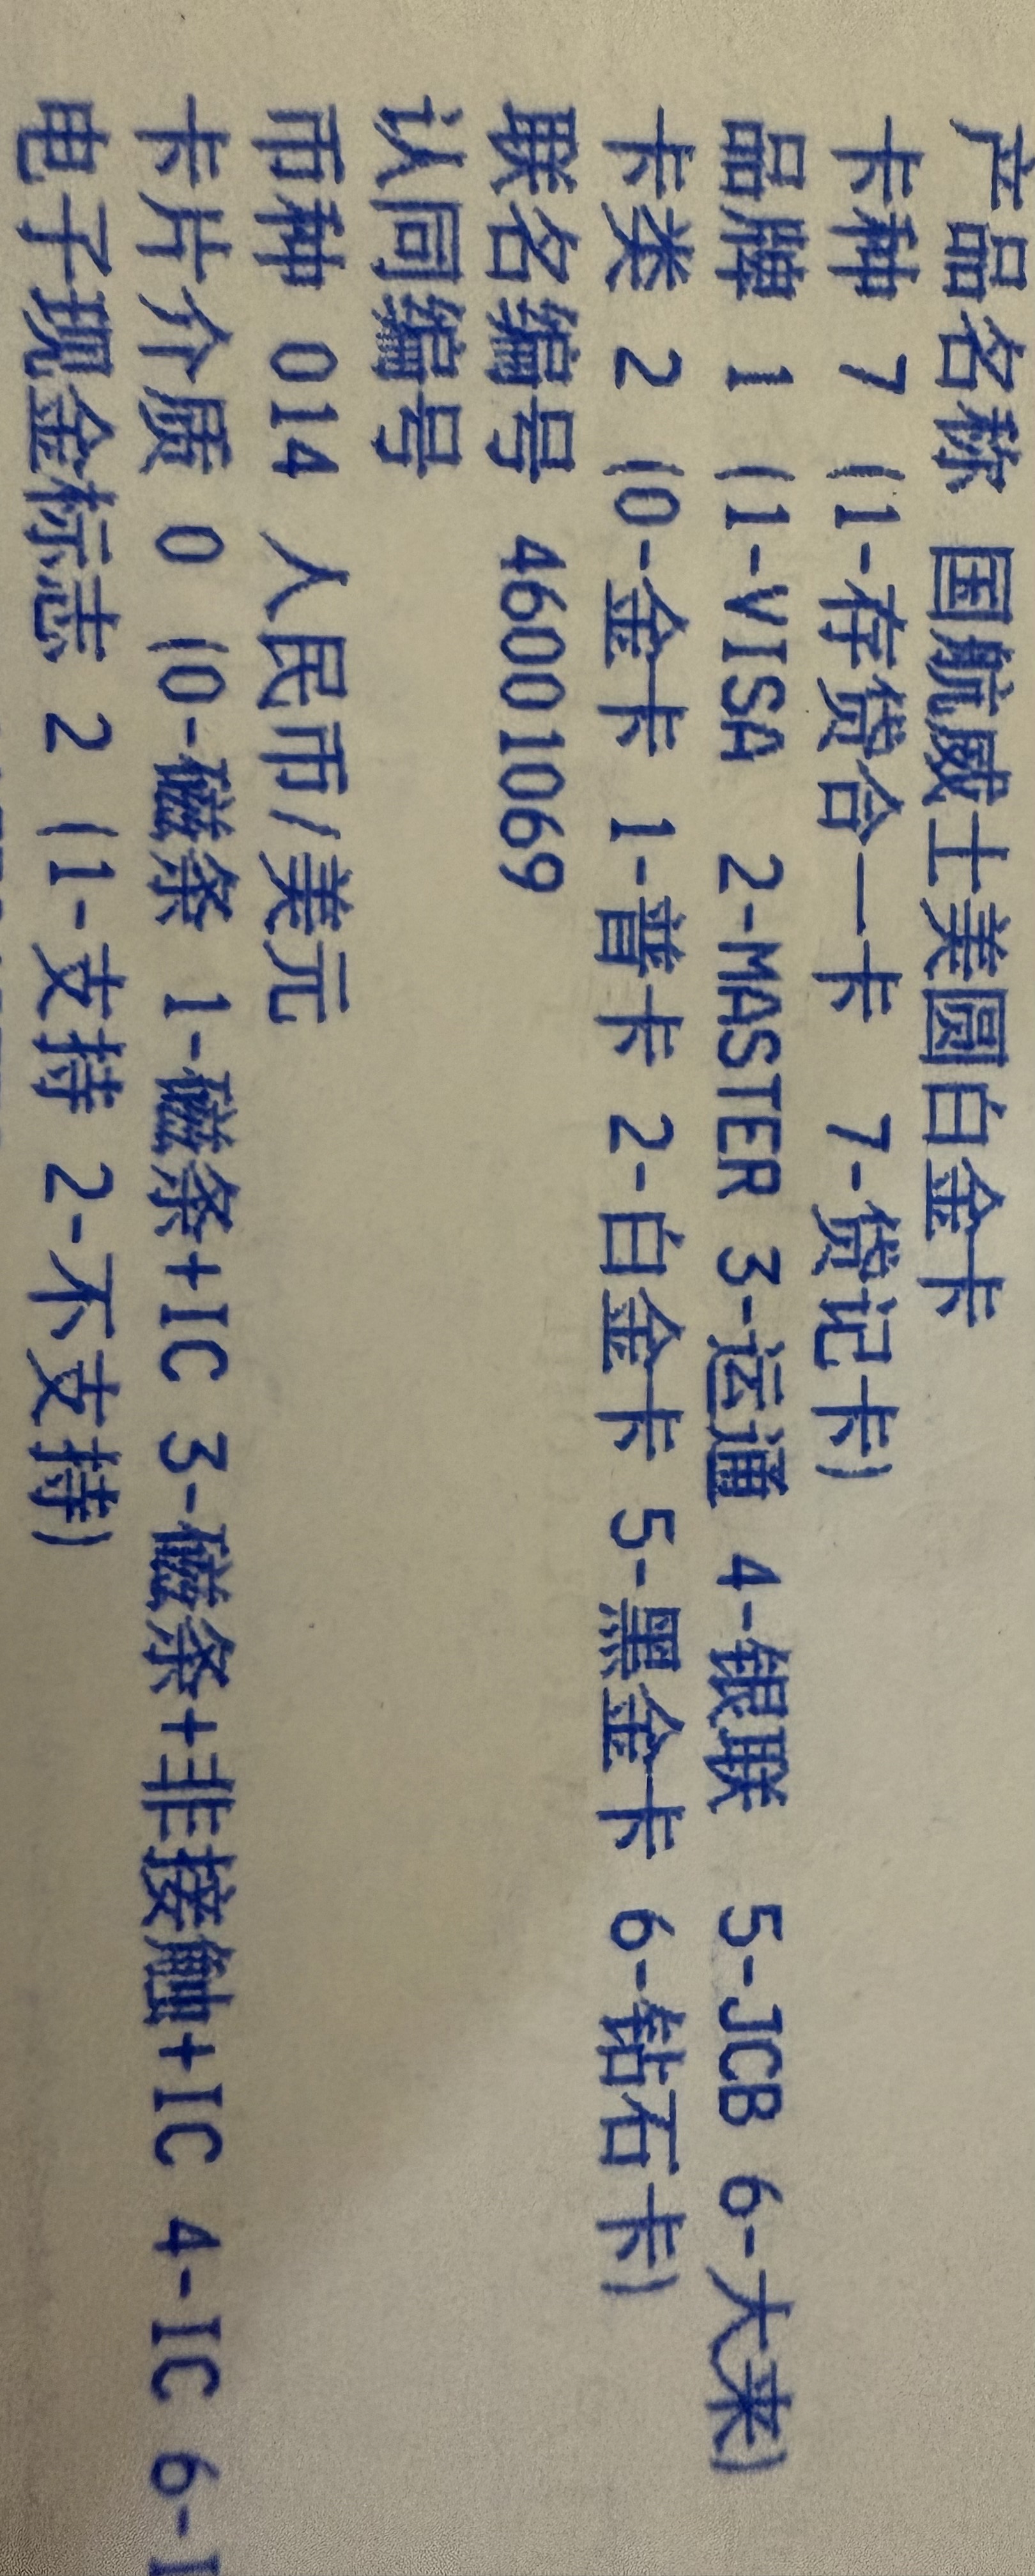 产品名称 国航威士美圆白金卡
卡种 7 (1-存贷合一卡 7-贷记卡)
品牌 1 (1-VISA 2-MASTER 3-运通 4-银联 5-JCB 6-大来)
卡类 2 (0-金卡 1-普卡 2-白金卡 5-黑金卡 6-钻石卡)
联名编号 46001069
认同编号
币种 014 人民币/美元
卡片介质 0 (0-磁条 1-磁条+IC 3-磁条+非接触+IC 4-IC 6-I
电子现金标志 2 (1-支持 2-不支持)